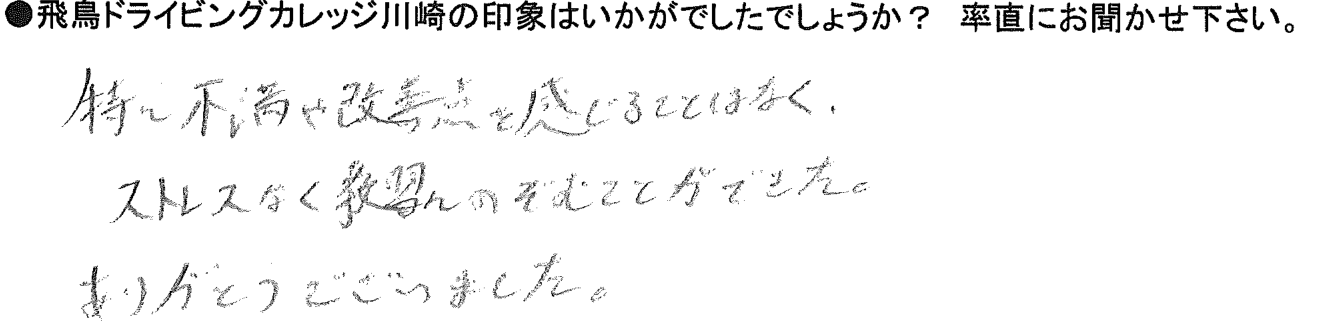 ●飛鳥ドライビングカレッジ川崎の印象はいかがでしたでしょうか？ 率直にお聞かせ下さい。
特に不満や改善点を感じることはなく、
ストレスなく教習にのぞむことができた。
ありがとうございました。